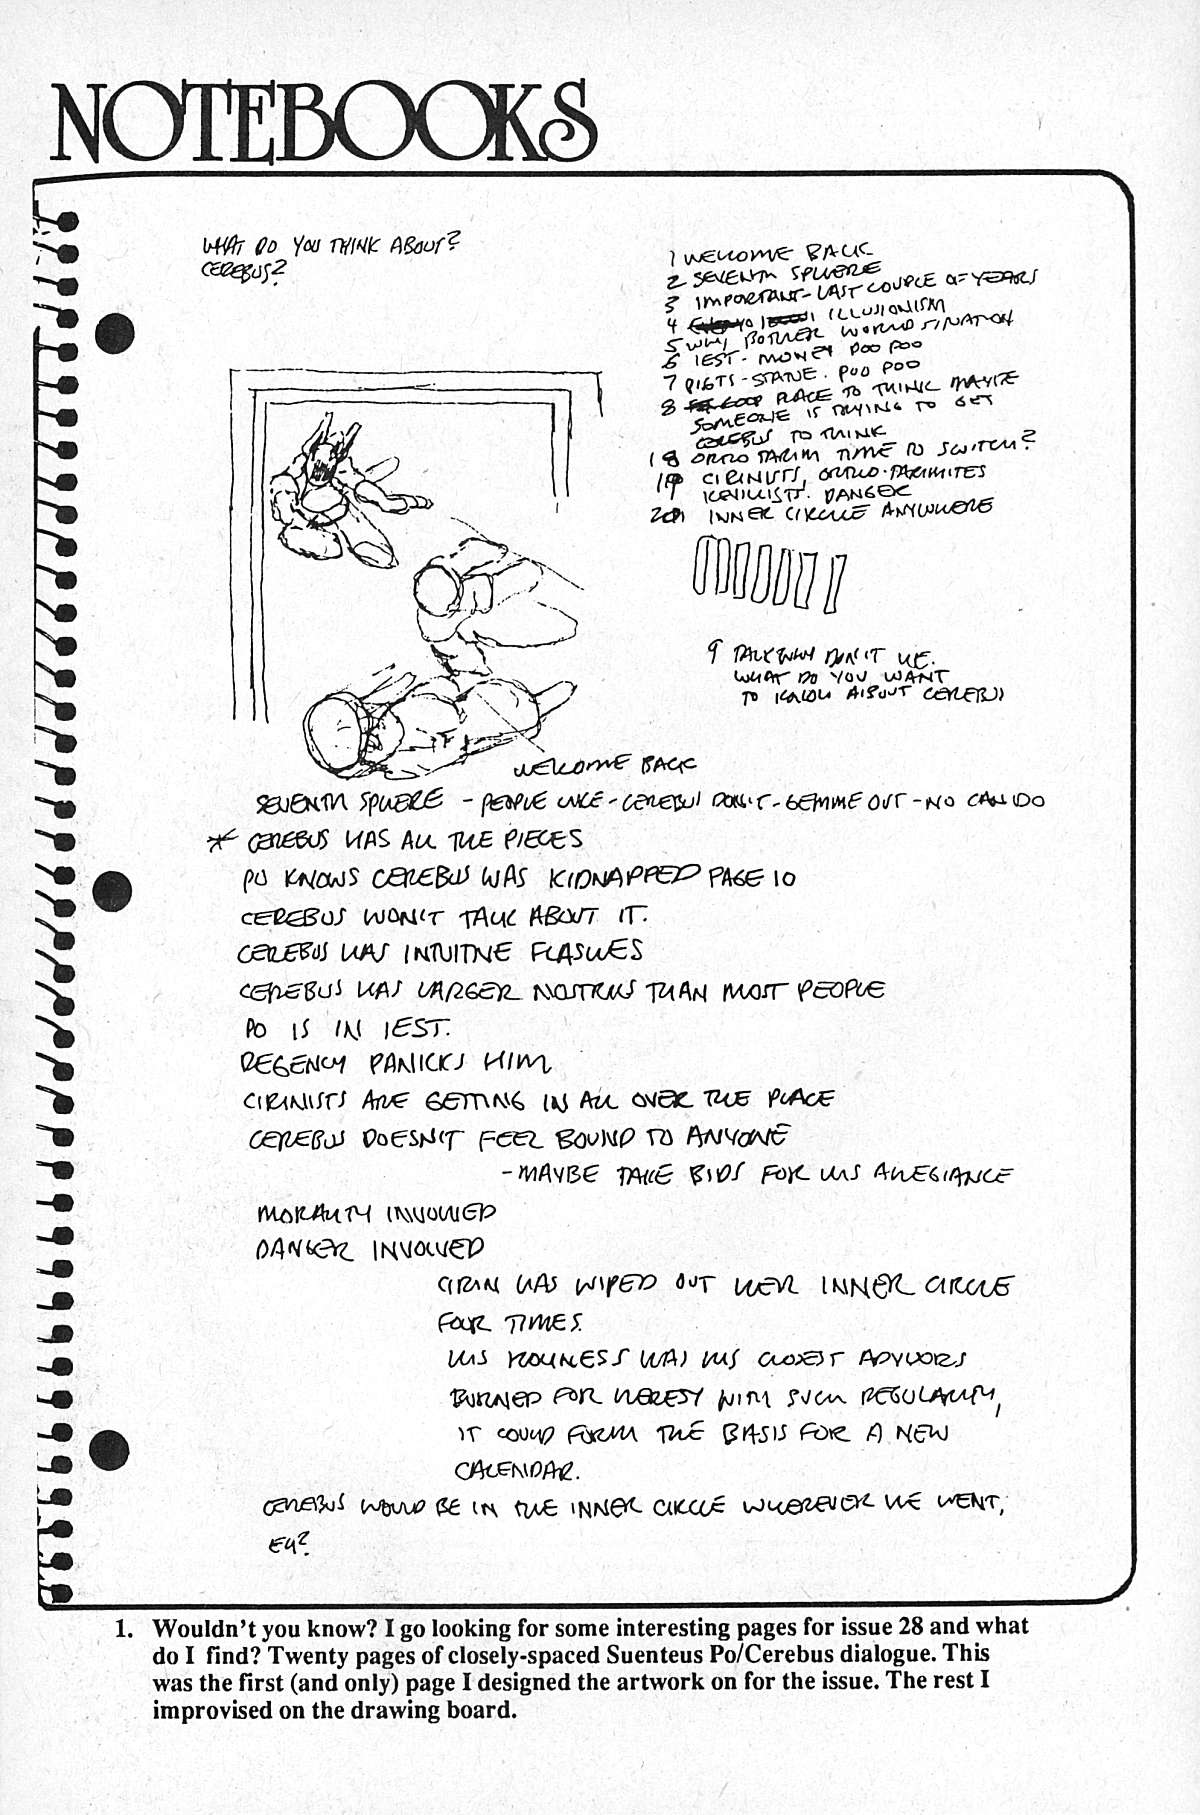 NOTEBOOKS
WHAT DO YOU THINK ABOUT?
CEREBUS?
1 WELCOME BACK
2 SEVENTH SPHERE
3 IMPORTANT - LAST COUPLE OF YEARS
4 ILLUSIONISM
5 WHY BOTHER WORLD
6 IEST - MONEY POO POO
7 PIGTS - STATUE. POO POO
8 PLACE TO THINK MAYBE
SOMEONE IS TRYING TO GET
CEREBUS TO THINK
18 ORTHO TARIM TIME TO SWITCH?
19 CIRINISTS, ORTHO-TARIMITES
KEVILLISTS. DANGER
20 INNER CIRCLE ANYWHERE
9 TALK WHY DON'T WE.
WHAT DO YOU WANT
TO KNOW ABOUT CEREBUS
WELCOME BACK
SEVENTH SPHERE - PEOPLE LIKE - CEREBUS DON'T - GEMME OUT - NO CAN DO
* CEREBUS HAS ALL THE PIECES
PO KNOWS CEREBUS WAS KIDNAPPED PAGE 10
CEREBUS WON'T TALK ABOUT IT.
CEREBUS HAS INTUITIVE FLASHES
CEREBUS HAS LARGER NOSTRILS THAN MOST PEOPLE
PO IS IN IEST.
REGENCY PANICKS HIM
CIRINISTS ARE GETTING IN ALL OVER THE PLACE
CEREBUS DOESN'T FEEL BOUND TO ANYONE
- MAYBE TAKE BIDS FOR HIS ALLEGIANCE
MORALITY INVOLVED
DANGER INVOLVED
CIRIN HAS WIPED OUT HER INNER CIRCLE
FOUR TIMES.
HIS HOLINESS HAS HIS CLOSEST ADVISORS
BURNED FOR HERESY WITH SUCH REGULARITY,
IT COULD FORM THE BASIS FOR A NEW
CALENDAR.
CEREBUS WOULD BE IN THE INNER CIRCLE WHEREVER HE WENT,
EH?
1. Wouldn't you know? I go looking for some interesting pages for issue 28 and what
do I find? Twenty pages of closely-spaced Suenteus Po/Cerebus dialogue. This
was the first (and only) page I designed the artwork on for the issue. The rest I
improvised on the drawing board.